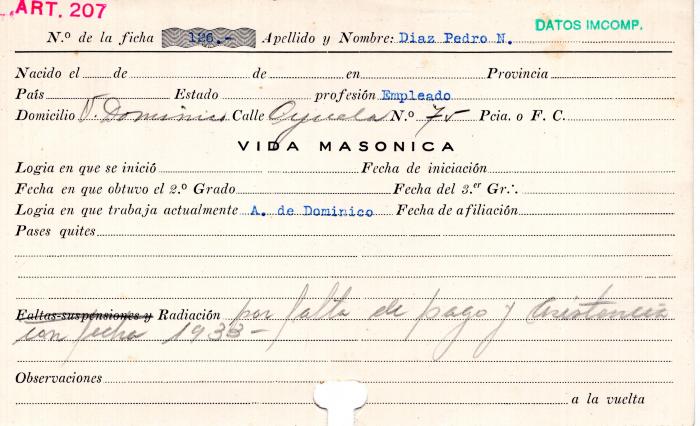 ART. 207
DATOS IMCOMP.
N.º de la ficha 126.- Apellido y Nombre: Diaz Pedro N.
Nacido el de de en Provincia
País Estado profesión Empleado
Domicilio V. Dominico Calle Oyuela N.º 75 Pcia. o F. C.
VIDA MASONICA
Logia en que se inició Fecha de iniciación
Fecha en que obtuvo el 2.º Grado Fecha del 3.er Gr∴
Logia en que trabaja actualmente A. de Dominico Fecha de afiliación
Pases quites
Faltas-suspensiones y Radiación por falta de pago y asistencia
con fecha 1933-
Observaciones
a la vuelta